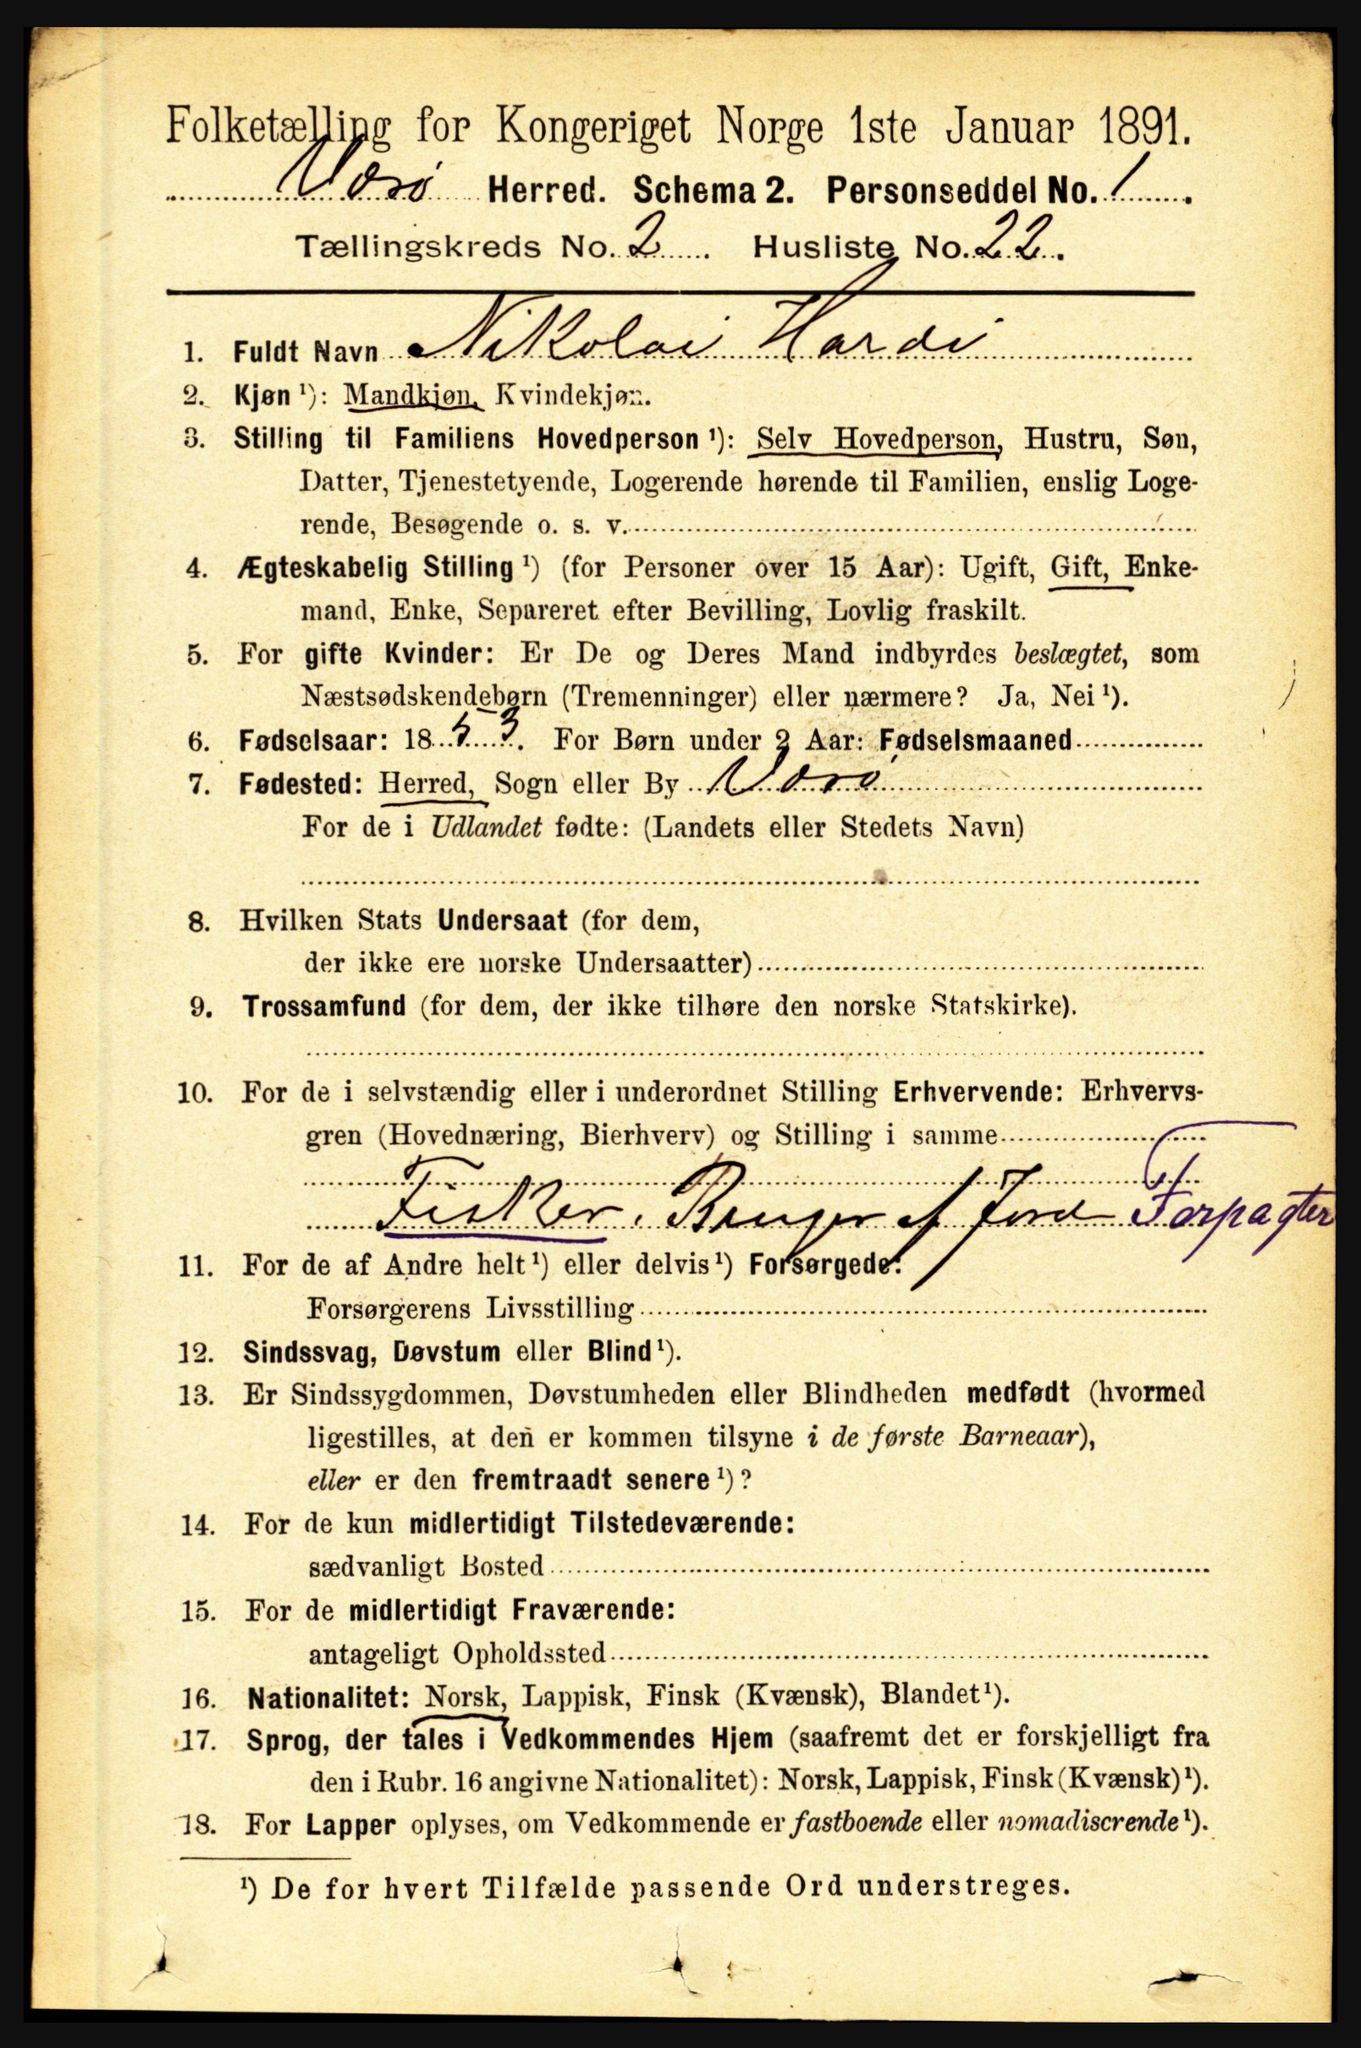 Folketælling for Kongeriget Norge 1ste Januar 1891.
Værø Herred. Schema 2. Personseddel No. 1.
Tællingskreds No. 2. Husliste No. 22.
1. Fuldt Navn Nikolai Hardi
2. Kjøn ¹): Mandkjøn, Kvindekjøn.
3. Stilling til Familiens Hovedperson ¹): Selv Hovedperson, Hustru, Søn,
Datter, Tjenestetyende, Logerende hørende til Familien, enslig Loge-
rende, Besøgende o. s. v.
4. Ægteskabelig Stilling ¹) (for Personer over 15 Aar): Ugift, Gift, Enke-
mand, Enke, Separeret efter Bevilling, Lovlig fraskilt.
5. For gifte Kvinder: Er De og Deres Mand indbyrdes beslægtet, som
Næstsødskendebørn (Tremenninger) eller nærmere? Ja, Nei ¹).
6. Fødselsaar: 1853. For Børn under 2 Aar: Fødselsmaaned
7. Fødested: Herred, Sogn eller By Værø
For de i Udlandet fødte: (Landets eller Stedets Navn)
8. Hvilken Stats Undersaat (for dem,
der ikke ere norske Undersaatter)
9. Trossamfund (for dem, der ikke tilhøre den norske Statskirke).
10. For de i selvstændig eller i underordnet Stilling Erhvervende: Erhvervs-
gren (Hovednæring, Bierhverv) og Stilling i samme
Fisker, Bruger af Jord Forpagter
11. For de af Andre helt ¹) eller delvis ¹) Forsørgede:
Forsørgerens Livsstilling
12. Sindssvag, Døvstum eller Blind ¹).
13. Er Sindssygdommen, Døvstumheden eller Blindheden medfødt (hvormed
ligestilles, at den er kommen tilsyne i de første Barneaar),
eller er den fremtraadt senere ¹)?
14. For de kun midlertidigt Tilstedeværende:
sædvanligt Bosted
15. For de midlertidigt Fraværende:
antageligt Opholdssted
16. Nationalitet: Norsk, Lappisk, Finsk (Kvænsk), Blandet ¹).
17. Sprog, der tales i Vedkommendes Hjem (saafremt det er forskjelligt fra
den i Rubr. 16 angivne Nationalitet): Norsk, Lappisk, Finsk (Kvænsk) ¹).
18. For Lapper oplyses, om Vedkommende er fastboende eller nomadiserende ¹).
¹) De for hvert Tilfælde passende Ord understreges.